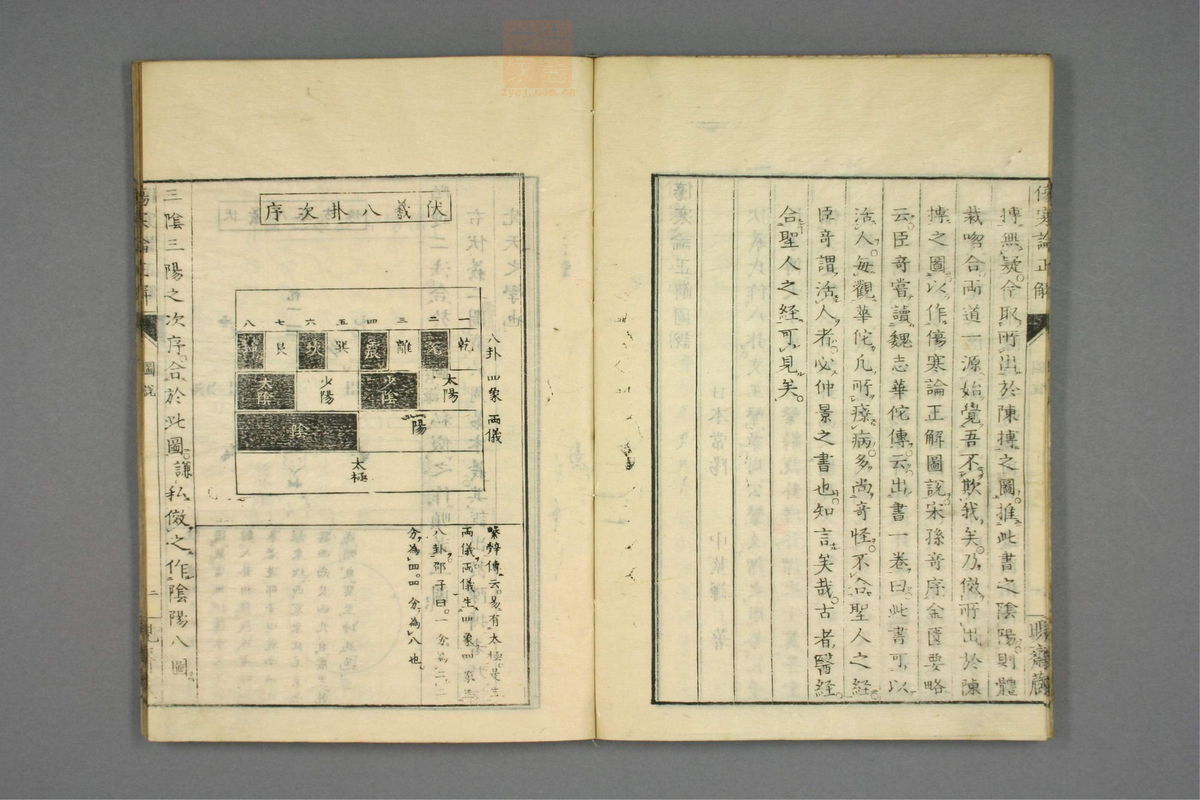 傷寒論正解
圖說
摶無疑。今取所出於陳摶之圖。推此書之陰陽。則體
裁吻合。兩道一源。始覺吾不欺我矣。乃倣所出於陳
摶之圖。以作傷寒論正解圖說。宋孫奇序金匱要略
云。臣奇嘗讀魏志華佗傳。云出書一卷。曰此書可以
活人。每觀華佗凡所療病。多尚奇怪。不合聖人之經。
臣奇謂活人者。必仲景之書也。知言矣哉。古者醫經
合聖人之經可見矣。
伏羲八卦次序
八卦 四象 兩儀
一 二 三 四 五 六 七 八
乾 離 震 巽 坎 艮
太陽 少陰 少陽 太陰
陽 陰
太極
繫辭傳云。易有太極。是生
兩儀。兩儀生四象。四象生
八卦。邵子曰。一分為二。二
分為四。四分為八也。
三陰三陽之次序。合於此圖。謙私倣之。作陰陽八圖。
圖說
二